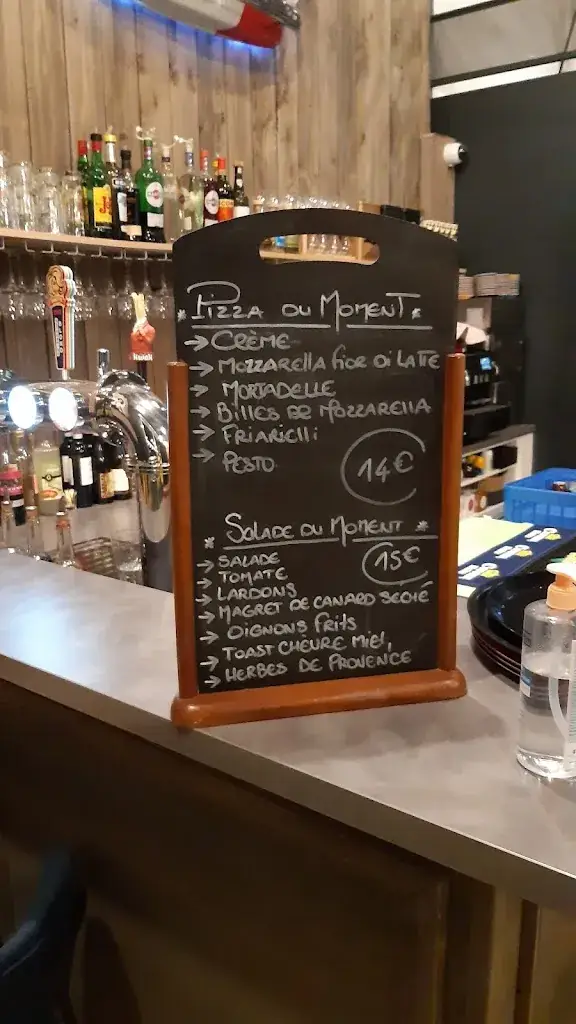 * Pizza du Moment *
→ Crème
→ Mozzarella fior di latte
→ Mortadelle
→ Billes de mozzarella
→ Friarielli
→ Pesto
14€
* Salade du Moment *
15€
→ Salade
→ Tomate
→ Lardons
→ Magret de canard seché
→ Oignons frits
→ Toast chèvre miel,
→ Herbes de Provence